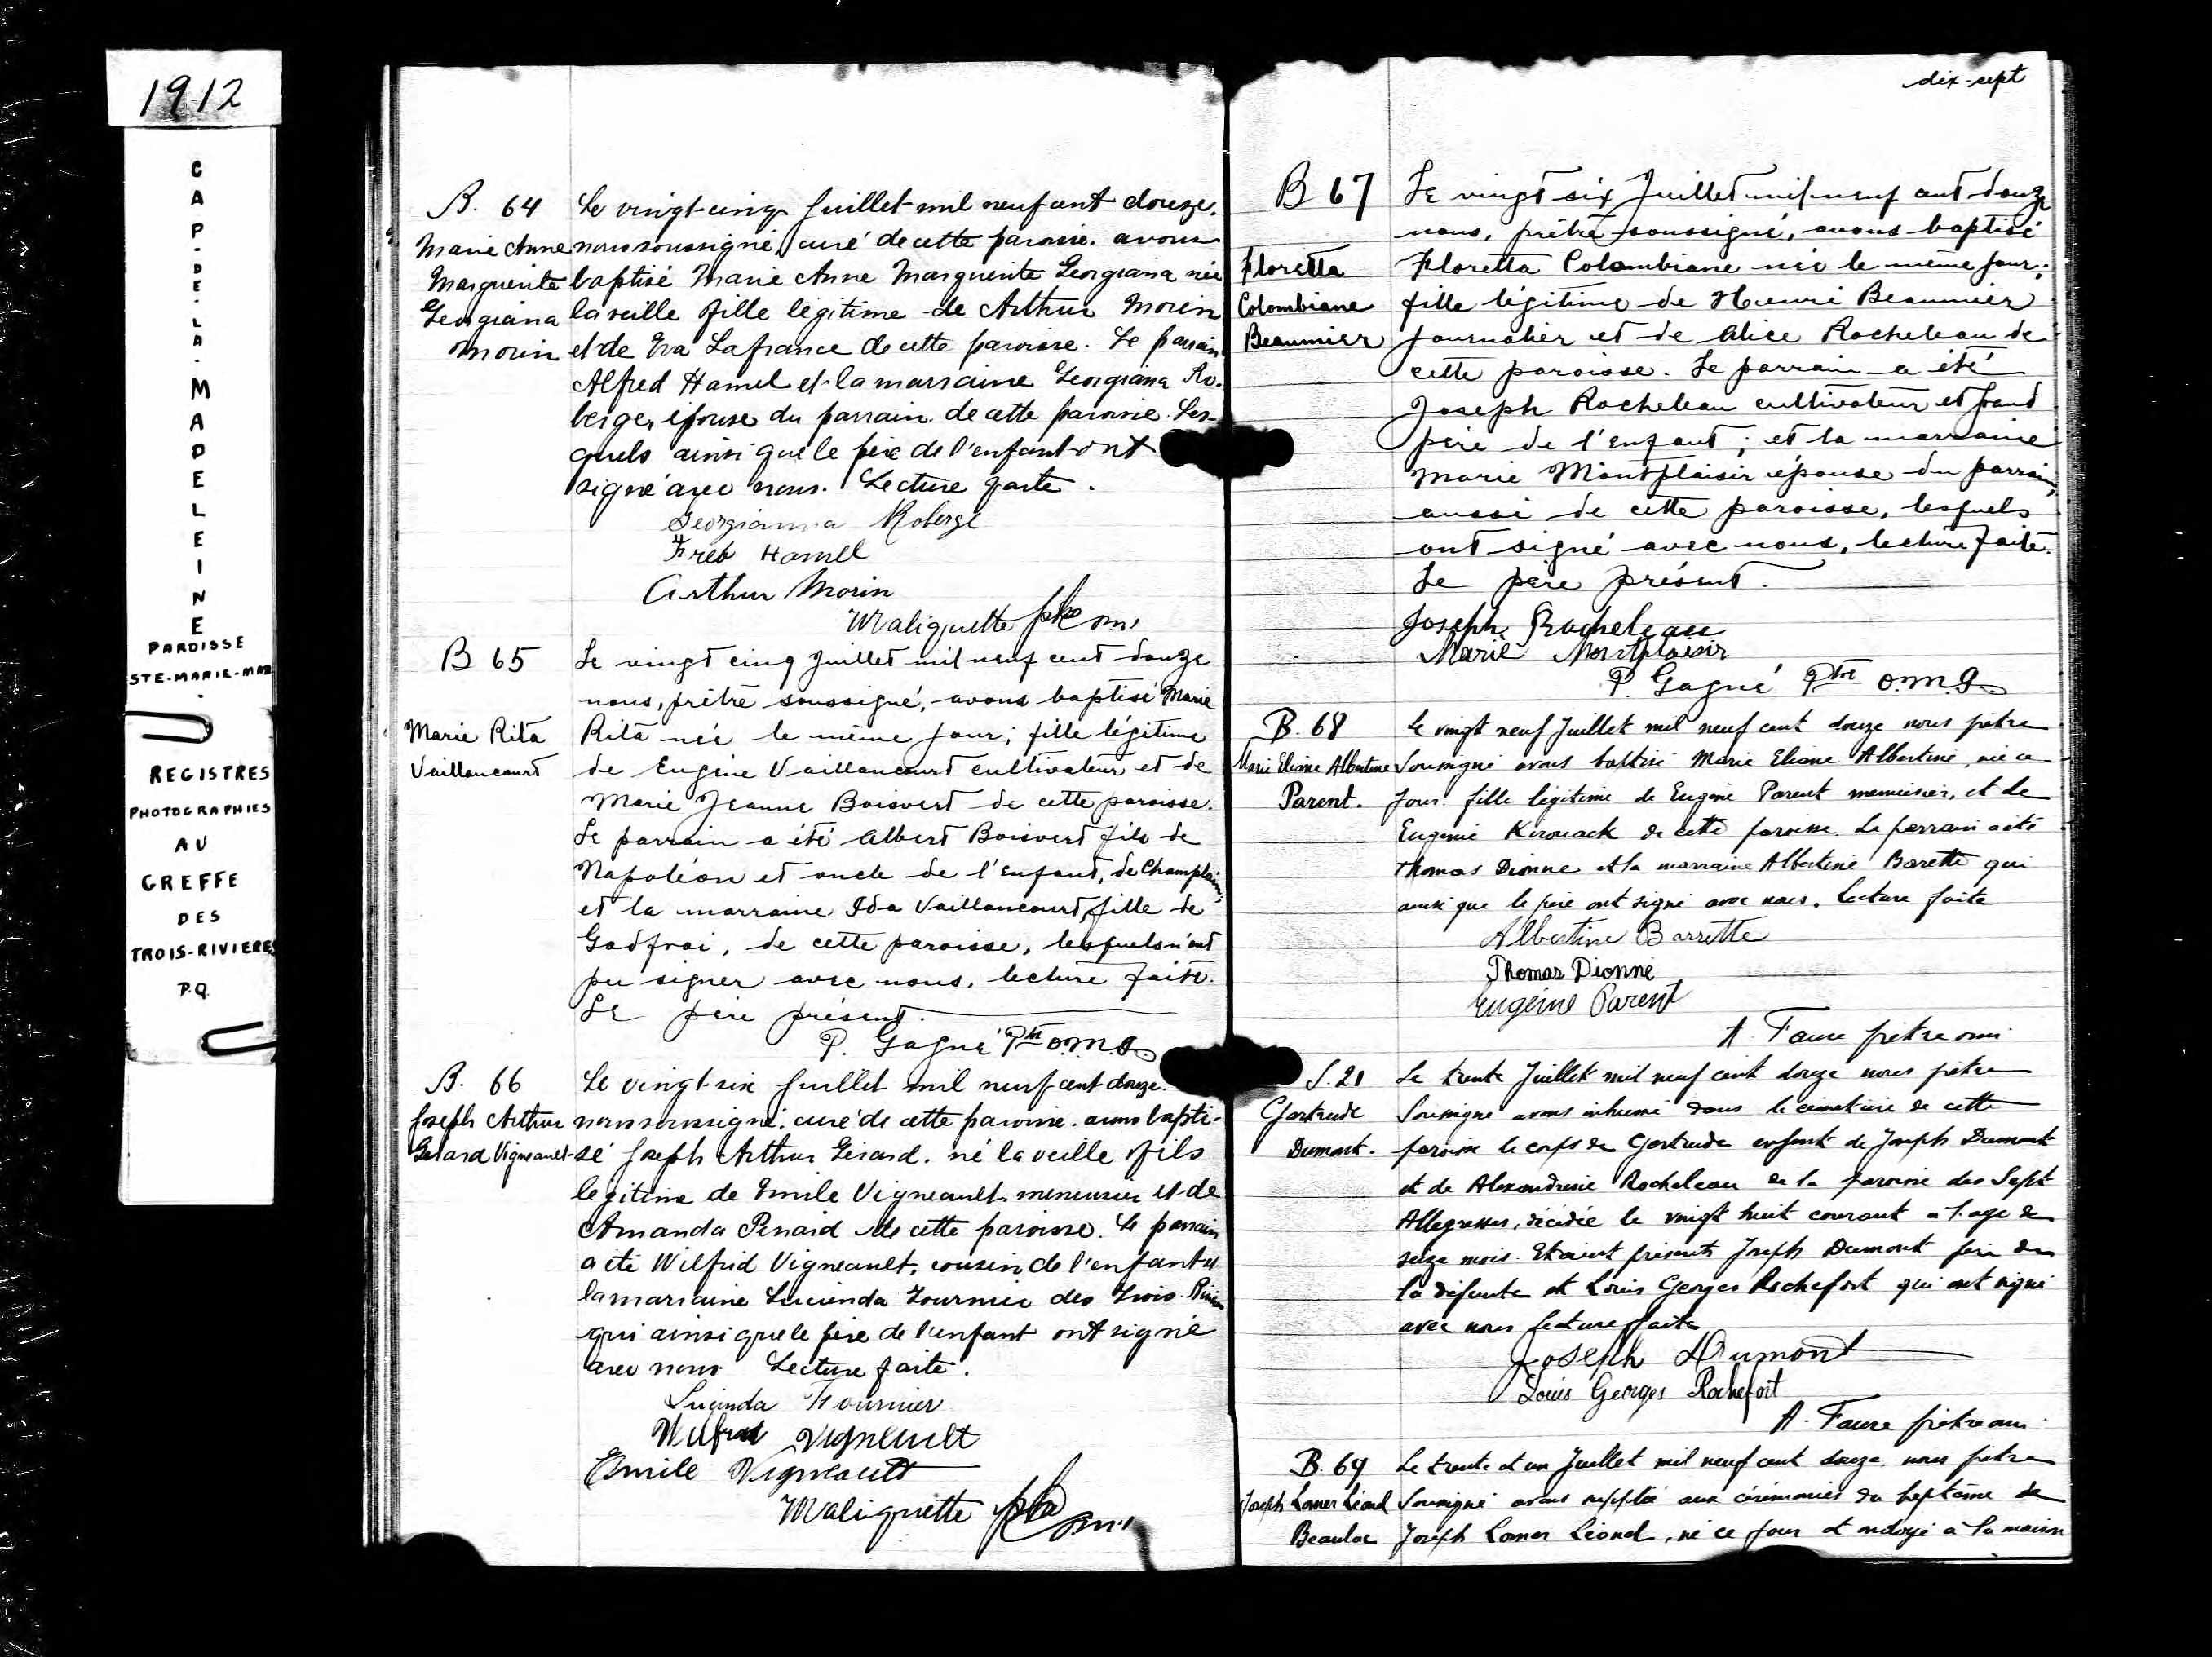 1912
CAP-DE-LA-MADELEINE
PAROISSE
STE-MARIE-MAD
REGISTRES
PHOTOGRAPHIES
AU
GREFFE
DES
TROIS-RIVIERES
P.Q.
B. 64
Marie Anne
Marguerite
Georgiana
Morin
Le vingt-cinq Juillet mil neuf cent douze.
nous soussigné, curé de cette paroisse. avons
baptisé Marie Anne Marguerite Georgiana née
la veille fille légitime de Arthur Morin
et de Eva Lafrance de cette paroisse. Le parrain
Alfred Hamel et la marraine Georgiana Ro-
berge, épouse du parrain de cette paroisse. Les-
quels ainsi que le père de l'enfant ont
signé avec nous. Lecture faite.
Georgianna Roberge
Fred Hamel
Arthur Morin
Maliguette ptre omi
B 65
Marie Rita
Vaillancourt
Le vingt cinq Juillet mil neuf cent douze
nous, prêtre soussigné, avons baptisé Marie
Rita née le même jour; fille légitime
de Eugène Vaillancourt cultivateur et de
Marie Jeanne Boisvert de cette paroisse.
Le parrain a été Albert Boisvert fils de
Napoléon et oncle de l'enfant, de Champlain,
et la marraine Ida Vaillancourt, fille de
Godfroi, de cette paroisse, lesquels n'ont
pu signer avec nous, lecture faite.
Le père présent.
P. Gagné Ptre O.M.I.
B. 66
Joseph Arthur
Gérard Vigneault
Le vingt-six Juillet mil neuf cent douze.
nous soussigné, curé de cette paroisse. avons bapti-
sé Joseph Arthur Gérard. né la veille fils
légitime de Emile Vigneault menuisier et de
Amanda Pinard de cette paroisse. Le parrain
a été Wilfrid Vigneault, cousin de l'enfant et
la marraine Lucinda Fournier des Trois-Rivières
qui ainsi que le père de l'enfant ont signé
avec nous Lecture faite.
Lucinda Fournier
Wilfrid Vigneault
Emile Vigneault
Maliguette ptre omi
dix-sept
B 67
Floretta
Colombiane
Beaumier
Le vingt six Juillet mil neuf cent douze
nous, prêtre soussigné, avons baptisé
Floretta Colombiane née le même jour;
fille légitime de Henri Beaumier
journalier et de Alice Rocheleau de
cette paroisse. Le parrain a été
Joseph Rocheleau cultivateur et grand
père de l'enfant; et la marraine
Marie Montplaisir épouse du parrain,
aussi de cette paroisse, lesquels
ont signé avec nous, lecture faite.
Le père présent.
Joseph Rocheleau
Marie Montplaisir
P. Gagné Ptre O.M.I.
B. 68
Marie Eliane Albertine
Parent.
Le vingt neuf Juillet mil neuf cent douze nous prêtre
Soussigné avons baptisé Marie Eliane Albertine, née ce
jour fille légitime de Eugène Parent menuisier, et de
Eugenie Kirouack de cette paroisse. Le parrain a été
Thomas Dionne et la marraine Albertine Barette qui
ainsi que le père ont signé avec nous. Lecture faite
Albertine Barrette
Thomas Dionne
Eugène Parent
A. Faure prêtre omi
S. 21
Gertrude
Dumont.
Le trente Juillet mil neuf cent douze nous prêtre
Soussigné avons inhumé dans le cimetière de cette
paroisse le corps de Gertrude enfant de Joseph Dumont
et de Alexandrine Rocheleau de la paroisse des Sept
Allegresses, décédée le vingt huit courant à l'age de
seize mois. Etaient présents Joseph Dumont père de
la défunte et Louis Georges Rochefort qui ont signé
avec nous lecture faite
Joseph Dumont
Louis Georges Rochefort
A. Faure prêtre omi
B. 69
Joseph Lomer Léonel
Beaulac
Le trente et un Juillet mil neuf cent douze. nous prêtre
Soussigné avons suppléé aux cérémonies du baptême de
Joseph Lomer Léonel, né ce jour et ondoyé à la maison